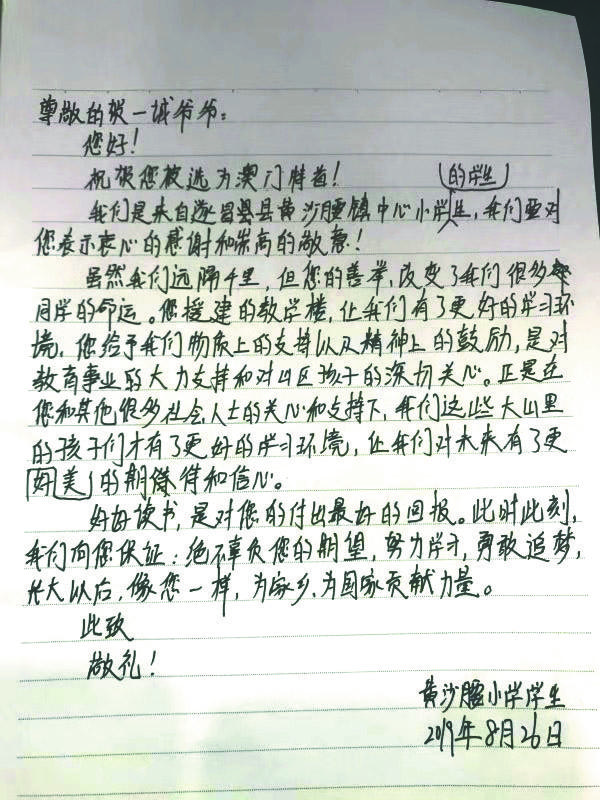 尊敬的贺一诚爷爷：
您好！
祝贺您被选为澳门特首！
的学生
我们是来自遂昌县黄沙腰镇中心小学生，我们要对
您表示衷心的感谢和崇高的敬意！
虽然我们远隔千里，但您的善举，改变了我们很多
同学的命运。您援建的教学楼，让我们有了更好的学习环
境，您给予我们物质上的支持以及精神上的鼓励，是对
教育事业的大力支持和对山区孩子的深切关心。正是在
您和其他很多社会人士的关心和支持下，我们这些大山里
的孩子们才有了更好的学习环境，让我们对未来有了更
好美的期待和信心。
好好读书，是对您的付出最好的回报。此时此刻，
我们向您保证：绝不辜负您的期望，努力学习，勇敢追梦，
长大以后，像您一样，为家乡、为国家贡献力量。
此致
敬礼！
黄沙腰小学学生
2019年8月26日